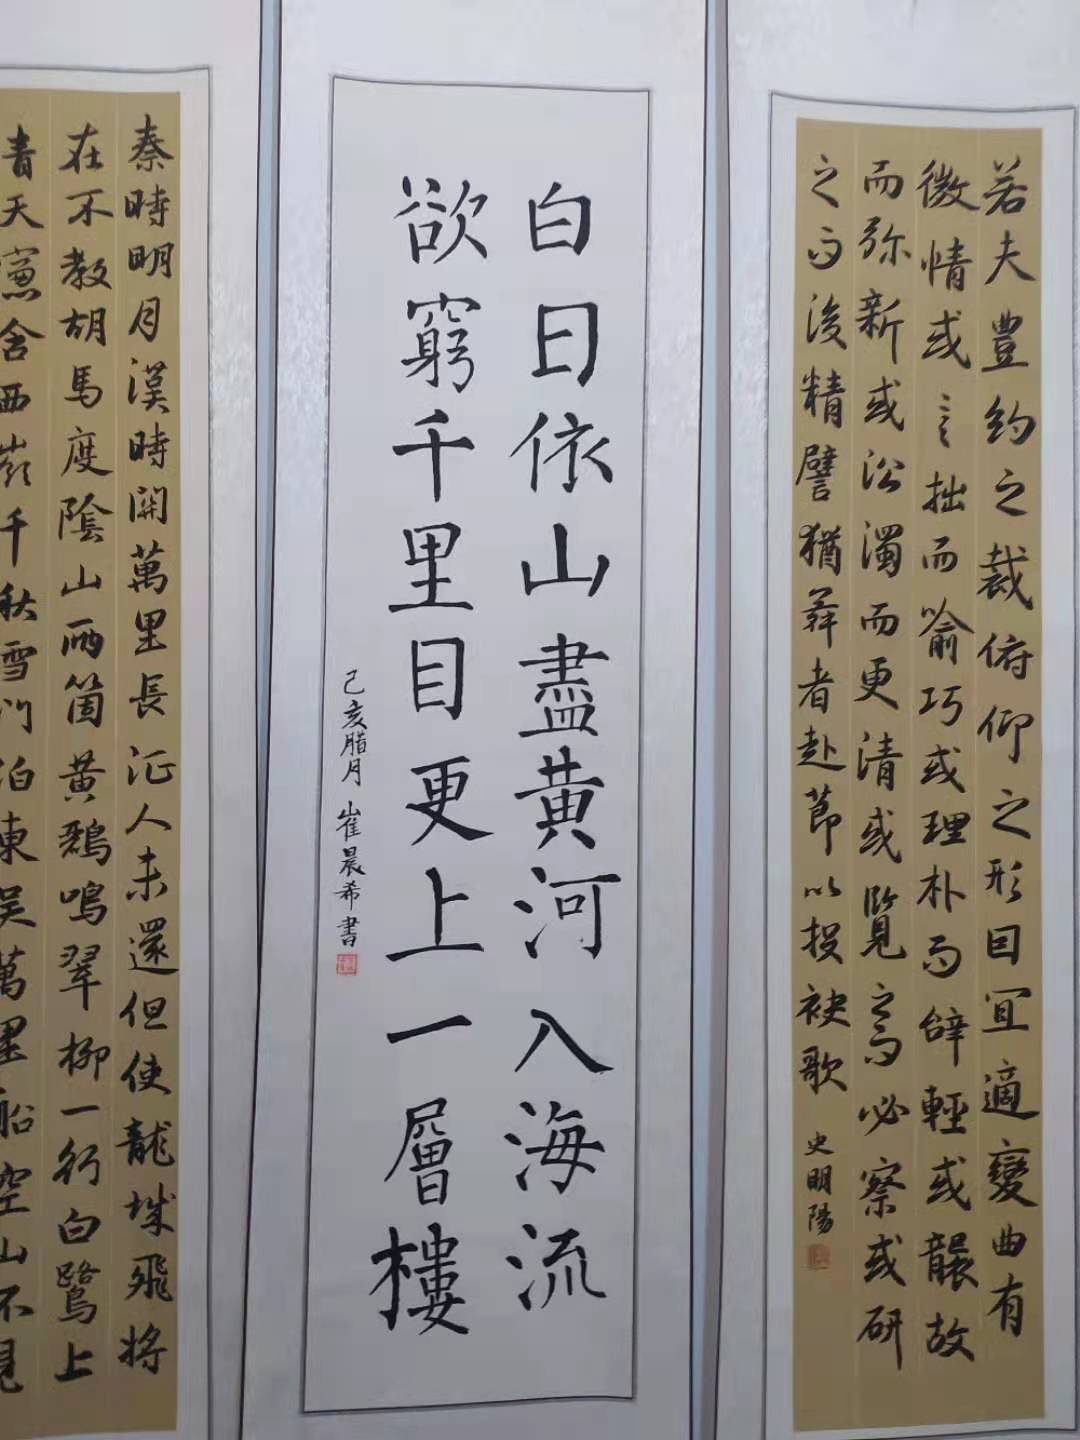 若夫豊約之裁俯仰之形因宜適變曲有
微情或言拙而喻巧或理朴而辭輕或襲故
而弥新或沿濁而更清或覽之而必察或研
之而後精譬猶舞者赴節以投袂歌
史明陽
白日依山盡黄河入海流
欲窮千里目更上一層樓
己亥腊月 崔晨希書
秦時明月漢時關萬里長征人未還但使龍城飛將
在不教胡馬度陰山兩箇黄鸝鳴翠柳一行白鷺上
青天窗含西嶺千秋雪門泊東吳萬里船空山不見